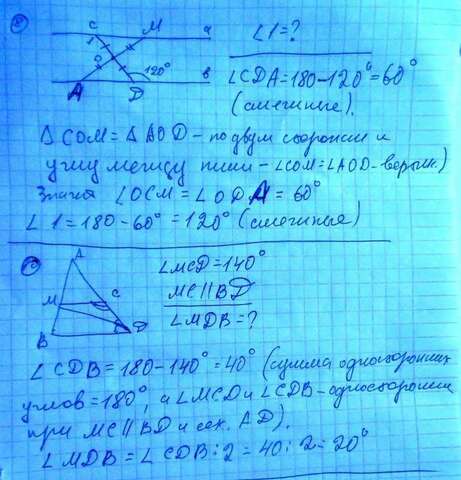 C M a
∠1=?
1
O
120°
b
A D
∠CDA=180-120°=60°
(смежные).
△COM=△AOD - по двум сторонам и
углу между ними - ∠COM=∠AOD-вертик.)
Значит ∠OCM=∠ODA=60°
∠1=180-60°=120° (смежные)
A
M C
B D
∠MCD=140°
MC||BD
∠MDB=?
∠CDB=180-140°=40° (сумма односторонних
углов=180°, а ∠MCD и ∠CDB-односторонние
при MC||BD и сек. AD).
∠MDB=∠CDB:2=40:2=20°